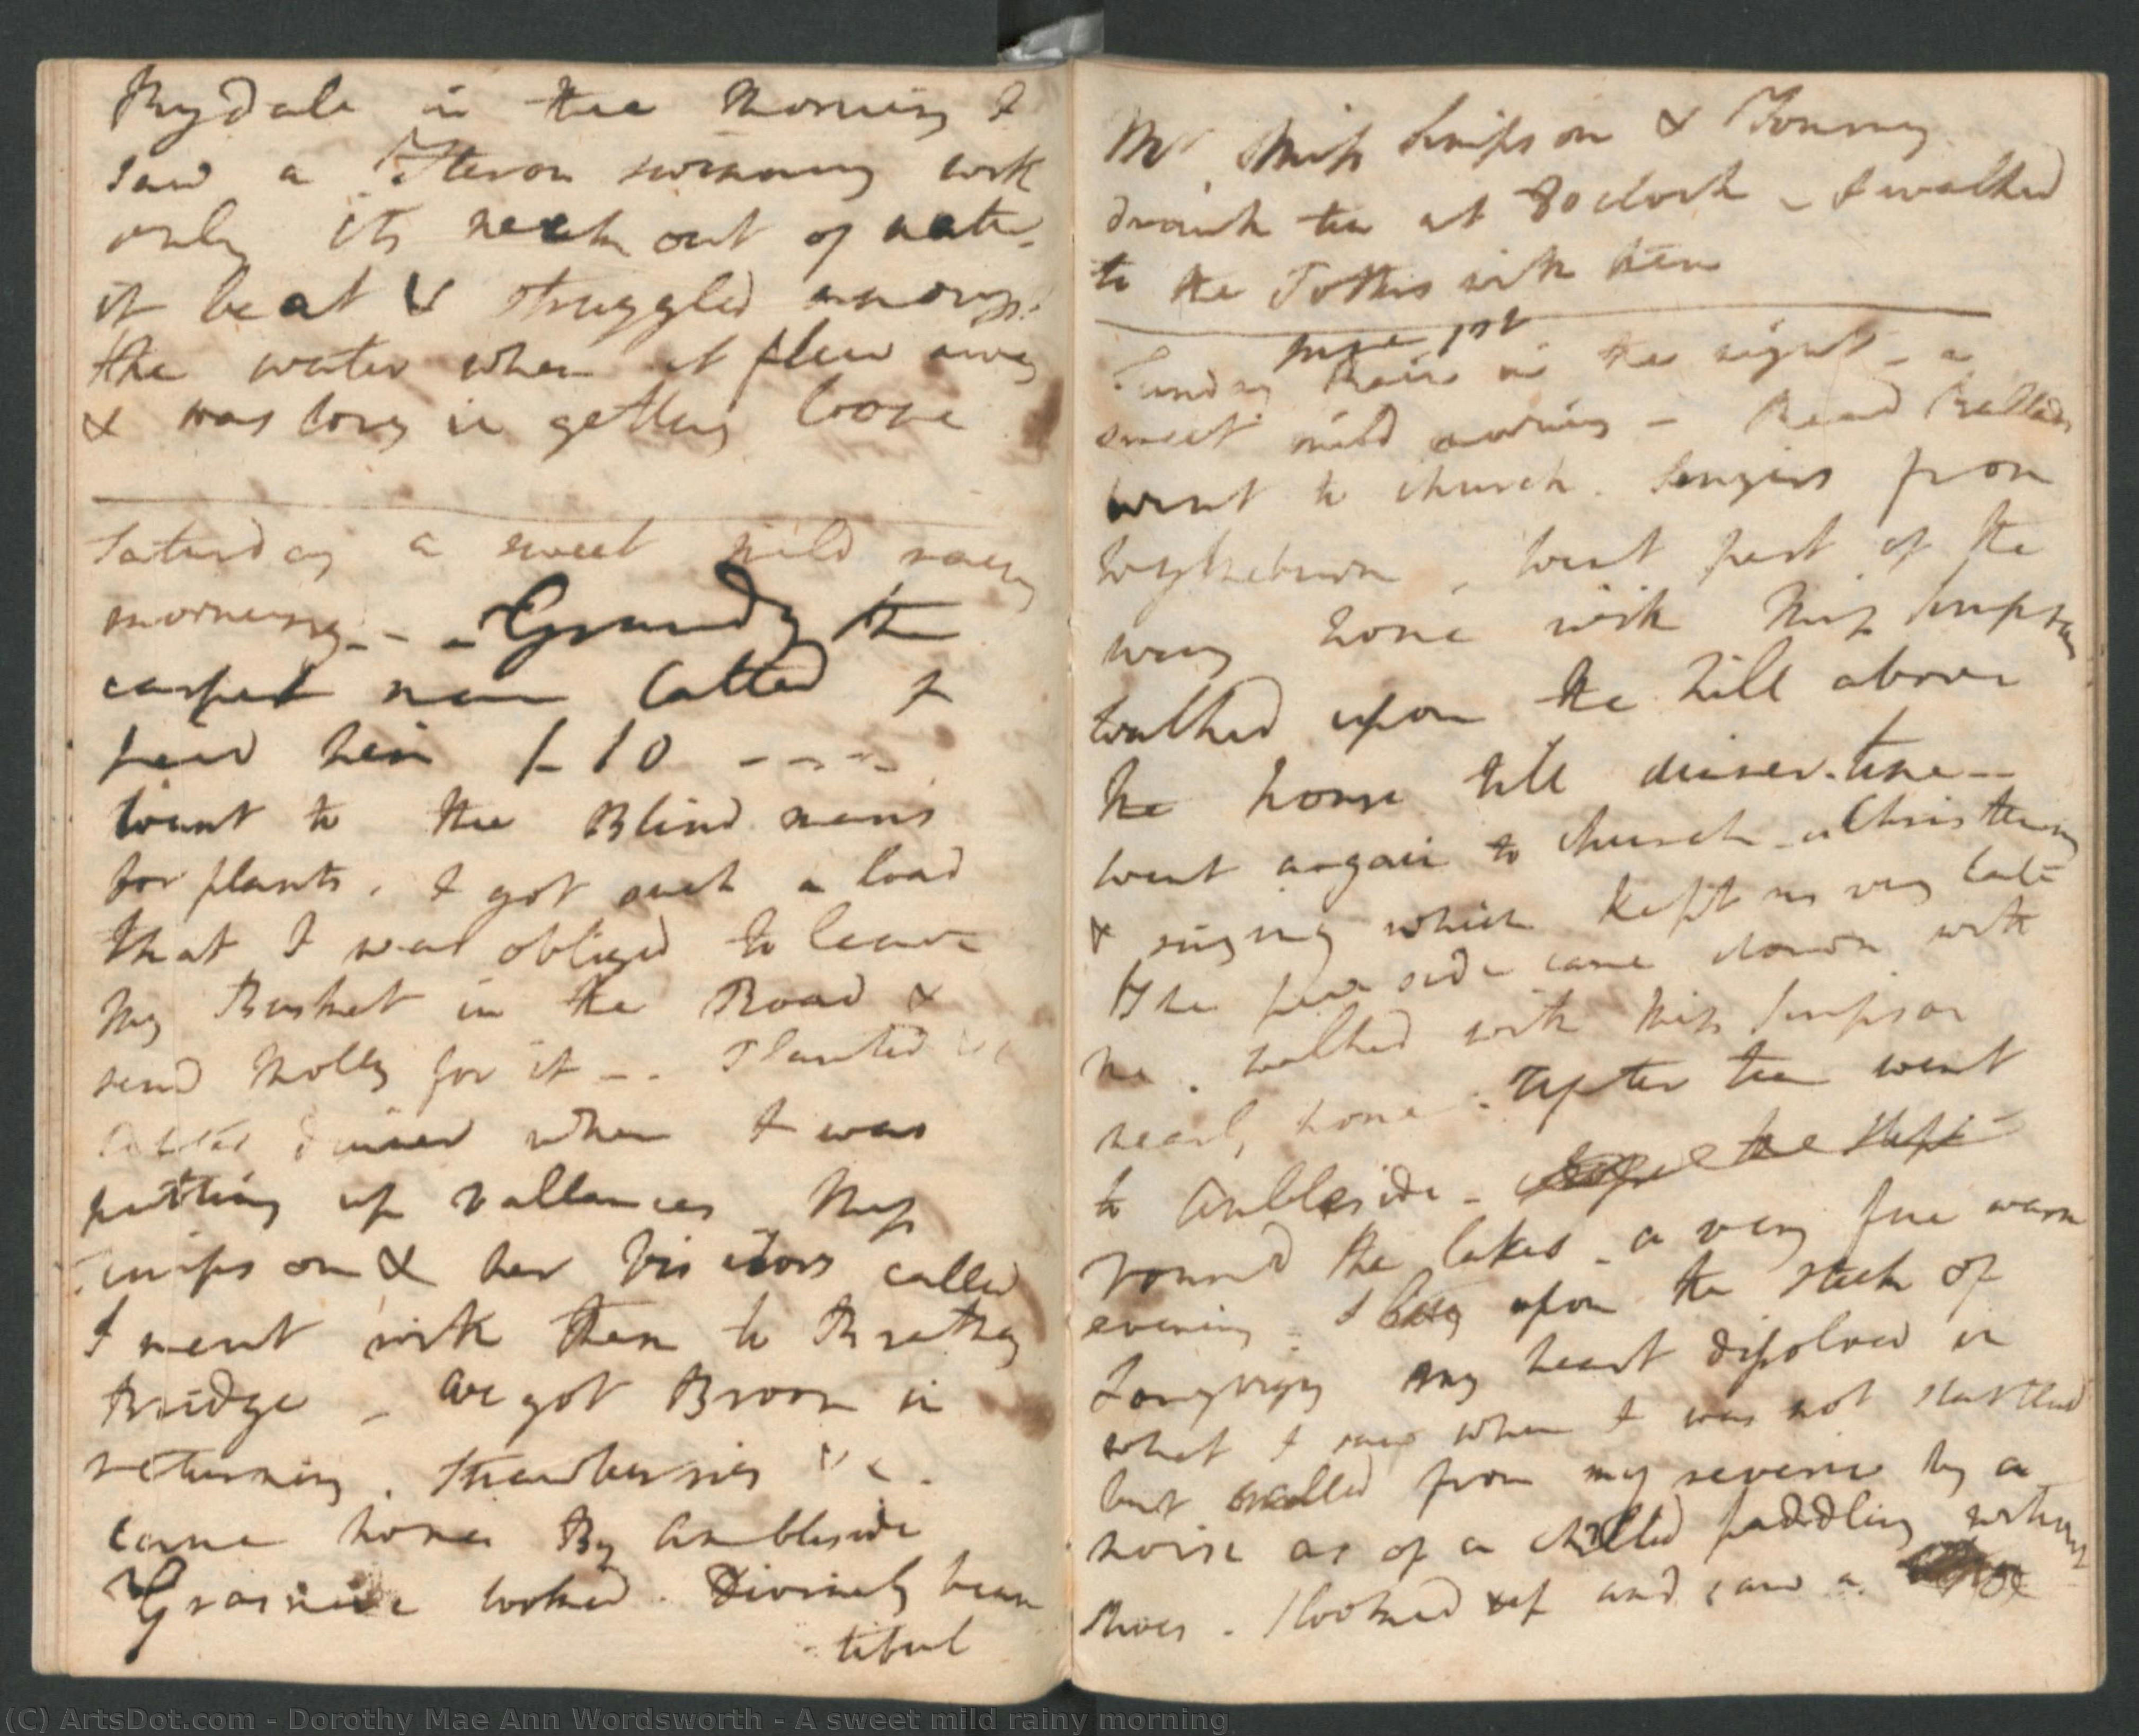 Rydale in the morning I
saw a Heron swimming with
only its neck out of water
it beat & struggled amongst
the water when it flew away
& was long in getting loose
Saturday a sweet mild rainy
morning - - Grundy the
carpet man called I
paid him 1-10 ----
Went to the Blind man's
for plants. I got such a load
that I was obliged to leave
my Basket in the Road &
send Molly for it -. Planted &c
After dinner when I was
putting up vallances Miss
Simpson & her Visitors called
I went with them to Brathay
Bridge - We got Broom in
returning, strawberries &c.
came home By Ambleside
Grasmere looked Divinely beau
-tiful
Mr Miss Simpson & Tommy
drank tea at 8 o clock - I walked
to the Potters with them
June 1st
Sunday Rain in the night - a
sweet mild morning - Read Ballads
went to church. Singers from
Wytheburn. Went part of the
way home with Miss Simpson
Walked upon the hill above
the house till dinner-time--
went again to church - a Christening
& singing which kept us very late
The pew side came down with
me. Walked with Miss Simpson
nearly home. After tea went
to Ambleside -
round the lakes - a very fine warm
evening. I lay upon the steep of
Loughrigg my heart dissolved in
what I saw when I was not startled
but recalled from my reverie by a
noise as of a child paddling without
shoes. I looked up and saw a
(C) ArtsDot.com - Dorothy Mae Ann Wordsworth - A sweet mild rainy morning